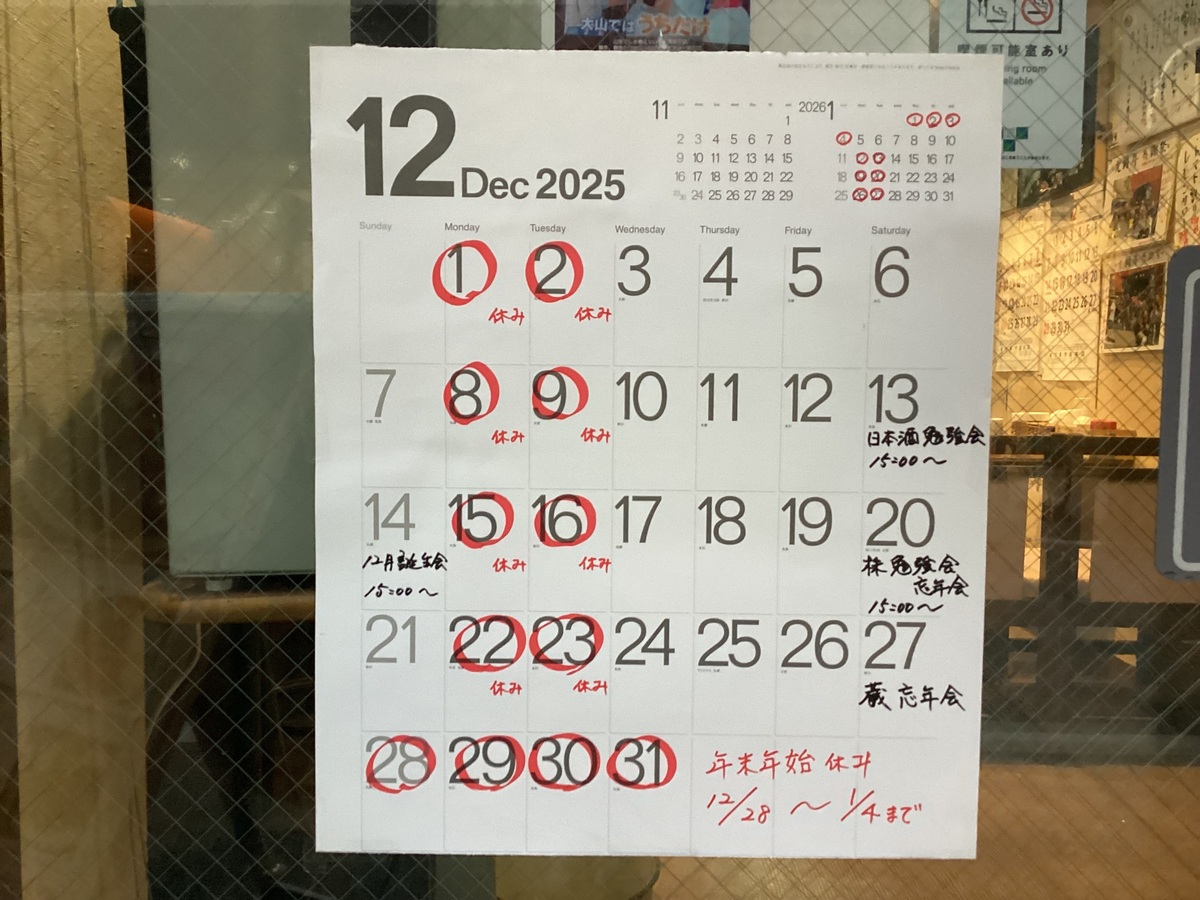 一木山では うちだけ
喫煙可能室あり
12 Dec 2025
11
1
2 3 4 5 6 7 8
9 10 11 12 13 14 15
16 17 18 19 20 21 22
23/30 24 25 26 27 28 29
2026 1
1 2 3
4 5 6 7 8 9 10
11 12 13 14 15 16 17
18 19 20 21 22 23 24
25 26 27 28 29 30 31
Sunday Monday Tuesday Wednesday Thursday Friday Saturday
1 2 3 4 5 6
休み 休み
7 8 9 10 11 12 13
休み 休み 日本酒勉強会
15:00〜
14 15 16 17 18 19 20
12月誕生会 休み 休み 株勉強会
忘年会
15:00〜 15:00〜
21 22 23 24 25 26 27
休み 休み 蔵忘年会
28 29 30 31
年末年始休み
12/28 〜 1/4まで